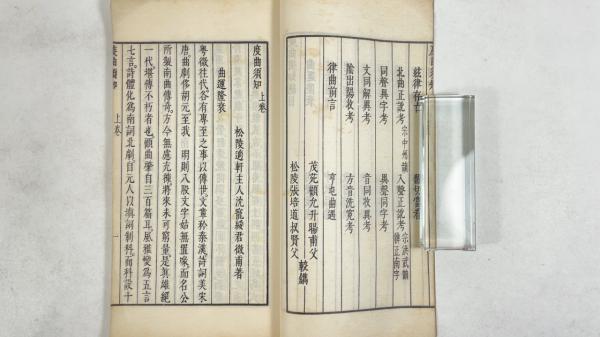 絃律存亡
北曲正訛考宗中州韻 入聲正訛考宗洪武韻
同聲異字考 異聲同字考
文同解異考 音同收異考
陰出陽收考 方音洗冤考
律曲前言 亨屯曲遇
茂苑顧允升 父
松陵張培道叔賢父 較鐫
度曲須知 上卷
松陵適軒主人沈寵綏君徵甫著
曲運隆衰
粵徵往代各有專至之事以傳世文章矜秦漢詩詞美宋
唐曲劇侈胡元至我 明則八股文字姑無置喙而名公
所製南曲傳奇方今無慮充棟將來未可窮量是真雄絕
一代堪傳不朽者也顧曲肇自三百篇耳風雅變為五言
七言詩體化為南詞北劇自元人以填詞制科而科設十
度曲須知 上卷 一